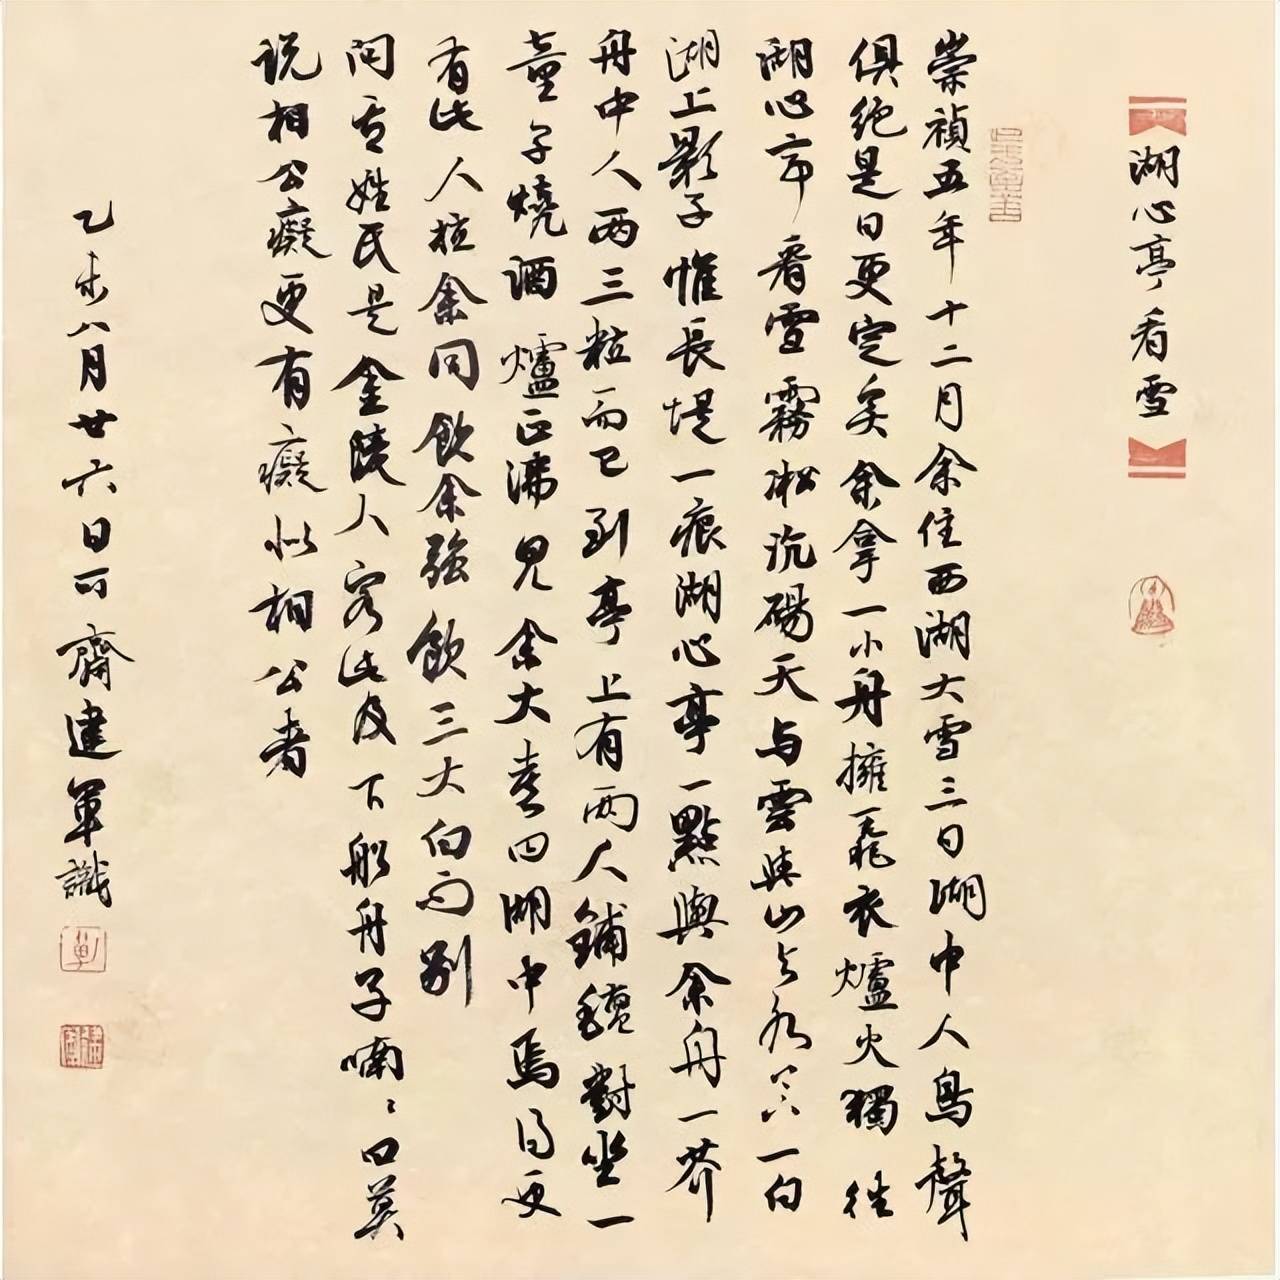 湖心亭看雪
崇禎五年十二月余住西湖大雪三日湖中人鳥聲
俱絕是日更定矣余拿一小舟擁毳衣爐火獨往
湖心亭看雪霧凇沆碭天与雲與山与水上下一白
湖上影子惟長堤一痕湖心亭一點與余舟一芥
舟中人兩三粒而已到亭上有兩人鋪氈對坐一
童子燒酒爐正沸見余大喜曰湖中焉得更
有此人拉余同飲余強飲三大白而別
问其姓氏是金陵人客此及下船舟子喃〻曰莫
说相公癡更有癡似相公者
乙未八月廿六日可齋建軍識